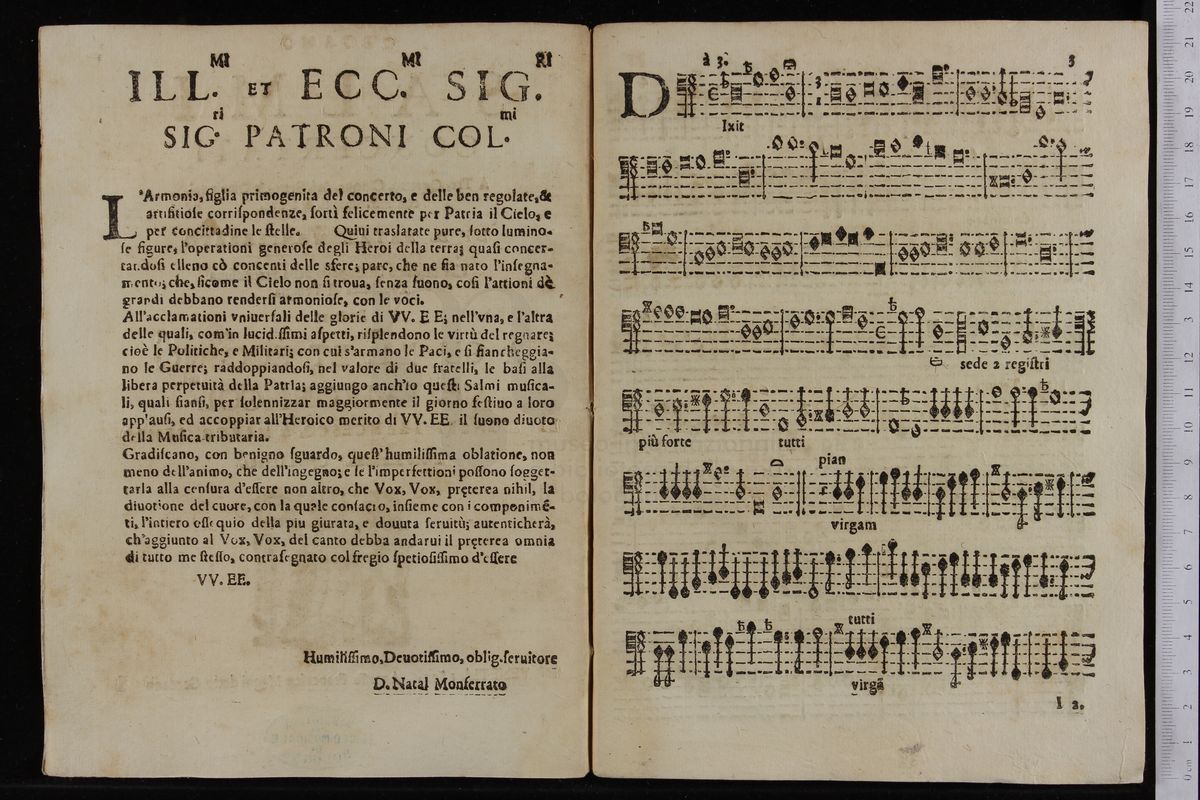 ILL.MI ET ECC.MI SIG.RI
SIG.ri PATRONI COL.mi
L'Armonia, figlia primogenita del concerto, e delle ben regolate, &
artifitiose corrispondenze, sortì felicemente per Patria il Cielo, e
per concittadine le stelle. Quiui traslatate pure, sotto lumino-
se figure, l'operationi generose degli Heroi della terra; quasi concer-
tandosi elleno cō concenti delle sfere; pare, che ne sia nato l'insegna-
mento; che, sicome il Cielo non si troua, senza suono, così l'attioni dē
grandi debbano rendersi armoniose, con le voci.
All'acclamationi vniuersali delle glorie di VV. EE; nell'vna, e l'altra
delle quali, com'in lucidissimi aspetti, risplendono le virtù del regnare;
cioè le Politiche, e Militari; con cui s'armano le Paci, e si fiancheggia-
no le Guerre; raddoppiandosi, nel valore di due fratelli, le basi alla
libera perpetuità della Patria; aggiungo anch'io questi Salmi musica-
li, quali siansi, per solennizzar maggiormente il giorno festiuo a loro
applausi, ed accoppiar all'Heroico merito di VV. EE. il suono diuoto
della Musica tributaria.
Gradiscano, con benigno sguardo, quest'humilissima oblatione, non
meno dell'animo, che dell'ingegno; e se l'imperfettioni possono sogget-
tarla alla censura d'essere non altro, che Vox, Vox, pręterea nihil, la
diuotione del cuore, con la quale consacro, insieme con i componimē-
ti, l'intiero ossequio della piu giurata, e douuta seruitù; autenticherà,
ch'aggiunto al Vox, Vox, del canto debba andarui il pręterea omnia
di tutto me stesso, contrasegnato col fregio spetiosissimo d'essere
VV. EE.
Humilissimo, Deuotissimo, oblig. seruitore
D. Natal Monferrato
à 3. 3
DIxit
sede a registri
più forte tutti
pian
virgam
tutti
virgā
I 2.